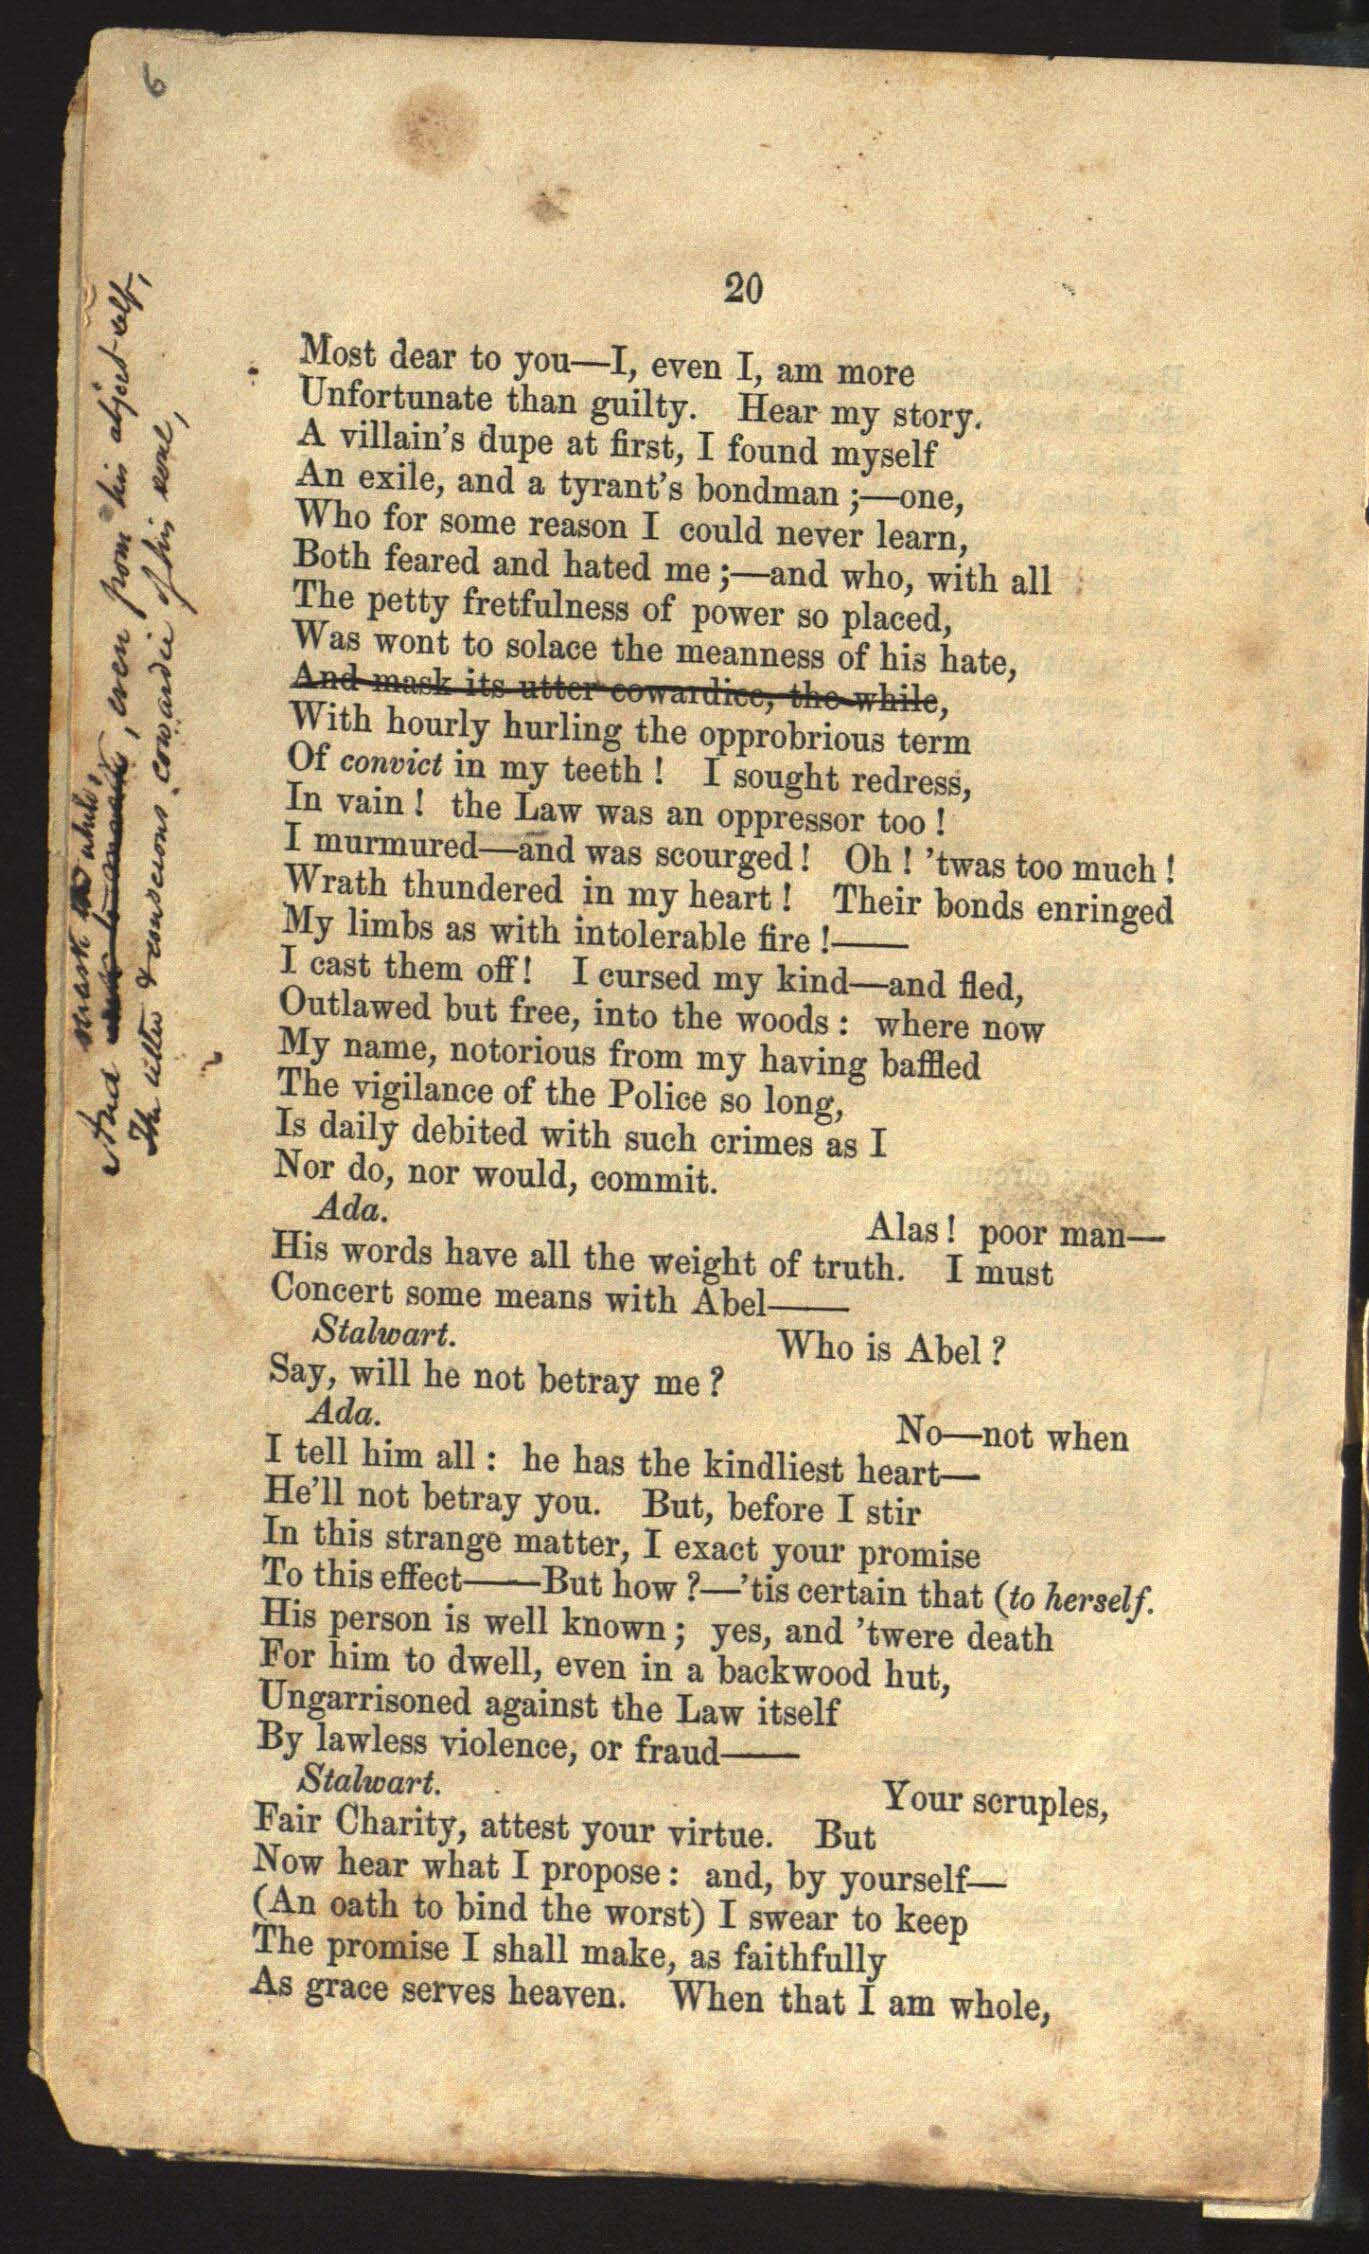 6
20
Most dear to you—I, even I, am more
Unfortunate than guilty. Hear my story.
A villain's dupe at first, I found myself
An exile, and a tyrant's bondman ;—one,
Who for some reason I could never learn,
Both feared and hated me ;—and who, with all
The petty fretfulness of power so placed,
Was wont to solace the meanness of his hate,
And mask its utter cowardice, the while,
With hourly hurling the opprobrious term
Of convict in my teeth ! I sought redress,
In vain ! the Law was an oppressor too !
I murmured—and was scourged ! Oh ! 'twas too much !
Wrath thundered in my heart ! Their bonds enringed
My limbs as with intolerable fire !——
I cast them off ! I cursed my kind—and fled,
Outlawed but free, into the woods : where now
My name, notorious from my having baffled
The vigilance of the Police so long,
Is daily debited with such crimes as I
Nor do, nor would, commit.
Ada. Alas ! poor man—
His words have all the weight of truth. I must
Concert some means with Abel——
Stalwart. Who is Abel ?
Say, will he not betray me ?
Ada. No—not when
I tell him all : he has the kindliest heart—
He'll not betray you. But, before I stir
In this strange matter, I exact your promise
To this effect——But how ?—'tis certain that (to herself.
His person is well known ; yes, and 'twere death
For him to dwell, even in a backwood hut,
Ungarrisoned against the Law itself
By lawless violence, or fraud——
Stalwart. Your scruples,
Fair Charity, attest your virtue. But
Now hear what I propose : and, by yourself—
(An oath to bind the worst) I swear to keep
The promise I shall make, as faithfully
As grace serves heaven. When that I am whole,
And mask while, even from his abject self,
The utter & conscious cowardice of his soul,